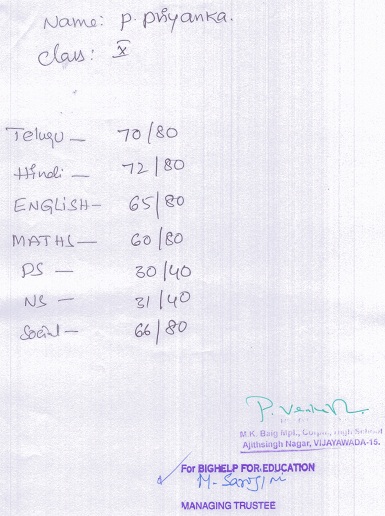 Name: P. Priyanka.
Class: X
Telugu — 70/80
Hindi — 72/80
ENGLISH — 65/80
MATHS — 60/80
PS — 30/40
NS — 31/40
Social — 66/80
P. Venkat
M.K. Baig Mpl., Corpn. High School
Ajithsingh Nagar, VIJAYAWADA-15.
For BIGHELP FOR EDUCATION
M. Sarojini
MANAGING TRUSTEE